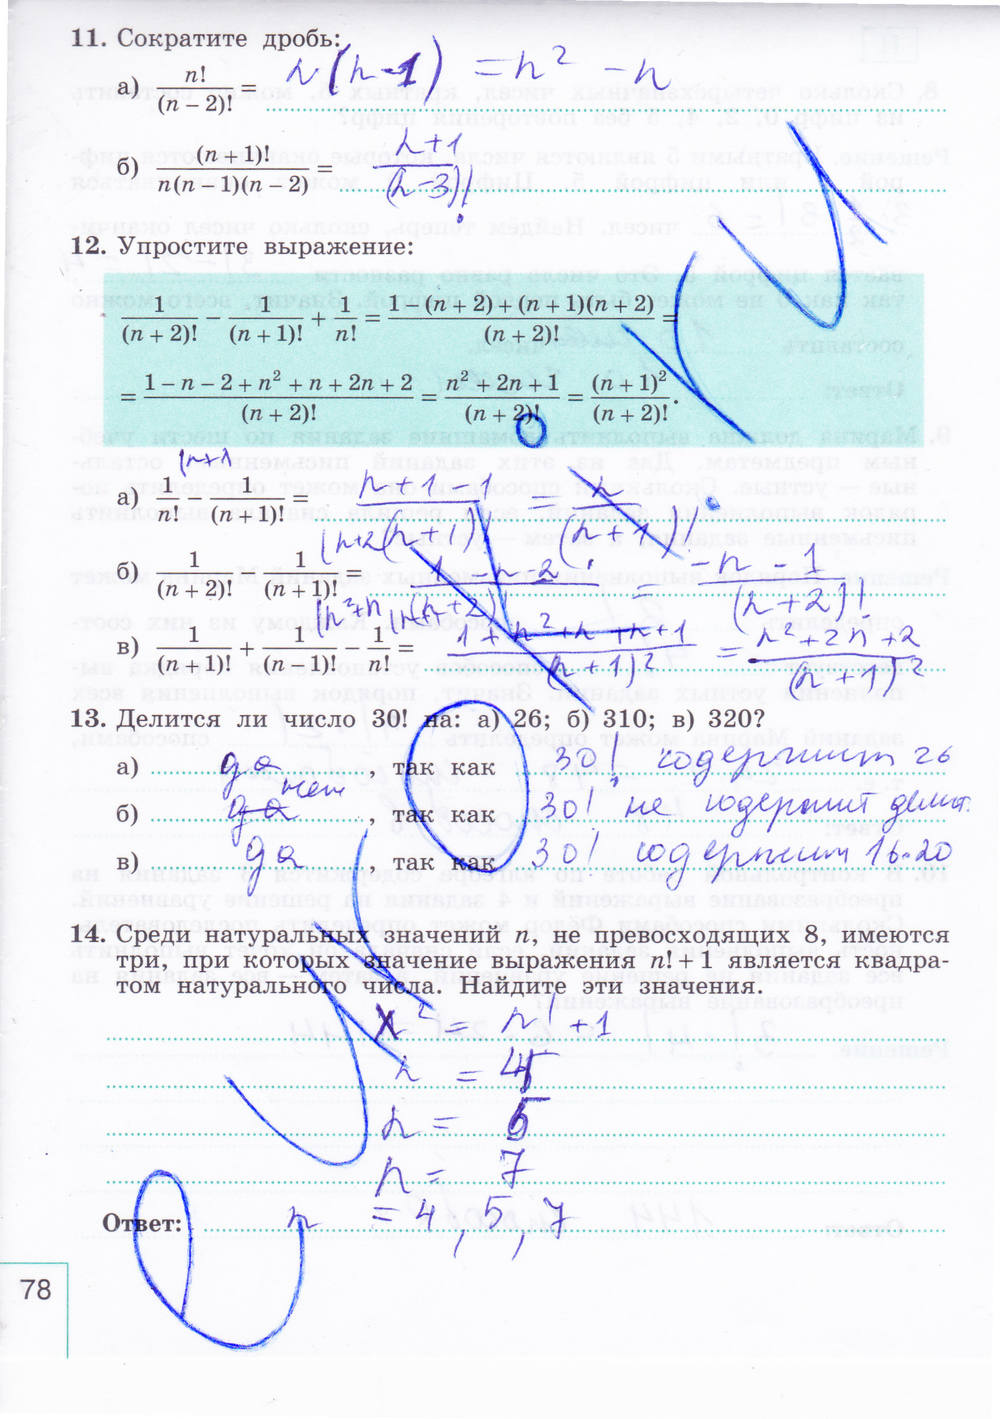 11. Сократите дробь:
а) n!/(n − 2)! = n(n−1) = n² − n
б) (n + 1)!/(n(n − 1)(n − 2)) = (n+1)/(n−3)!
12. Упростите выражение:
1/(n + 2)! − 1/(n + 1)! + 1/n! = (1 − (n + 2) + (n + 1)(n + 2))/(n + 2)! =
= (1 − n − 2 + n² + n + 2n + 2)/(n + 2)! = (n² + 2n + 1)/(n + 2)! = (n + 1)²/(n + 2)!.
а) 1/n! − 1/(n + 1)! = (n+1−1)/(n+1)! = n/(n+1)!
б) 1/(n + 2)! − 1/(n + 1)! = (1−n−2)/(n+2)! = (−n−1)/(n+2)!
в) 1/(n + 1)! + 1/(n − 1)! − 1/n! = (1+n²+n+n+1)/(n+1)² = (n²+2n+2)/(n+1)²
13. Делится ли число 30! на: а) 26; б) 310; в) 320?
а) да, так как 30! содержит 26
б) да нет, так как 30! не содержит делит.
в) да, так как 30! содержит 16·20
14. Среди натуральных значений n, не превосходящих 8, имеются
три, при которых значение выражения n! + 1 является квадра-
том натурального числа. Найдите эти значения.
x² = n! + 1
n = 4
n = 5
n = 7
Ответ: n = 4, 5, 7
78